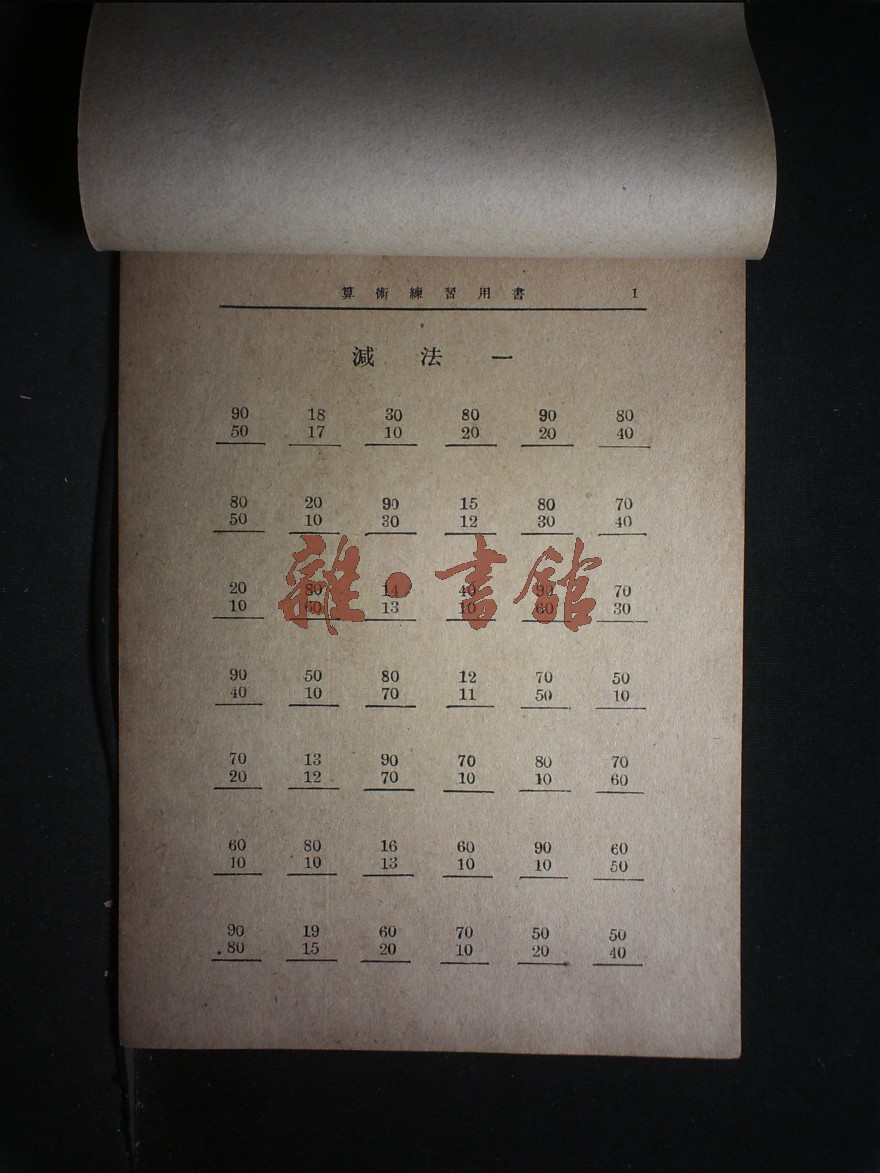 算術練習用書 1
減法一
90 18 30 80 90 80
50 17 10 20 20 40
80 20 90 15 80 70
50 10 30 12 30 40
20 80 14 40 90 70
10 60 13 10 60 30
雜·書館
90 50 80 12 70 50
40 10 70 11 50 10
70 13 90 70 80 70
20 12 70 10 10 60
60 80 16 60 90 60
10 10 13 10 10 50
90 19 60 70 50 50
80 15 20 10 20 40